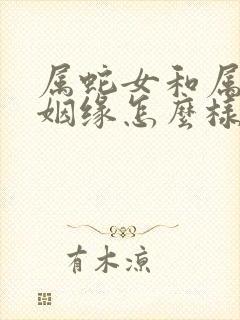 属蛇女和属
姻缘怎麼樣
有木凉